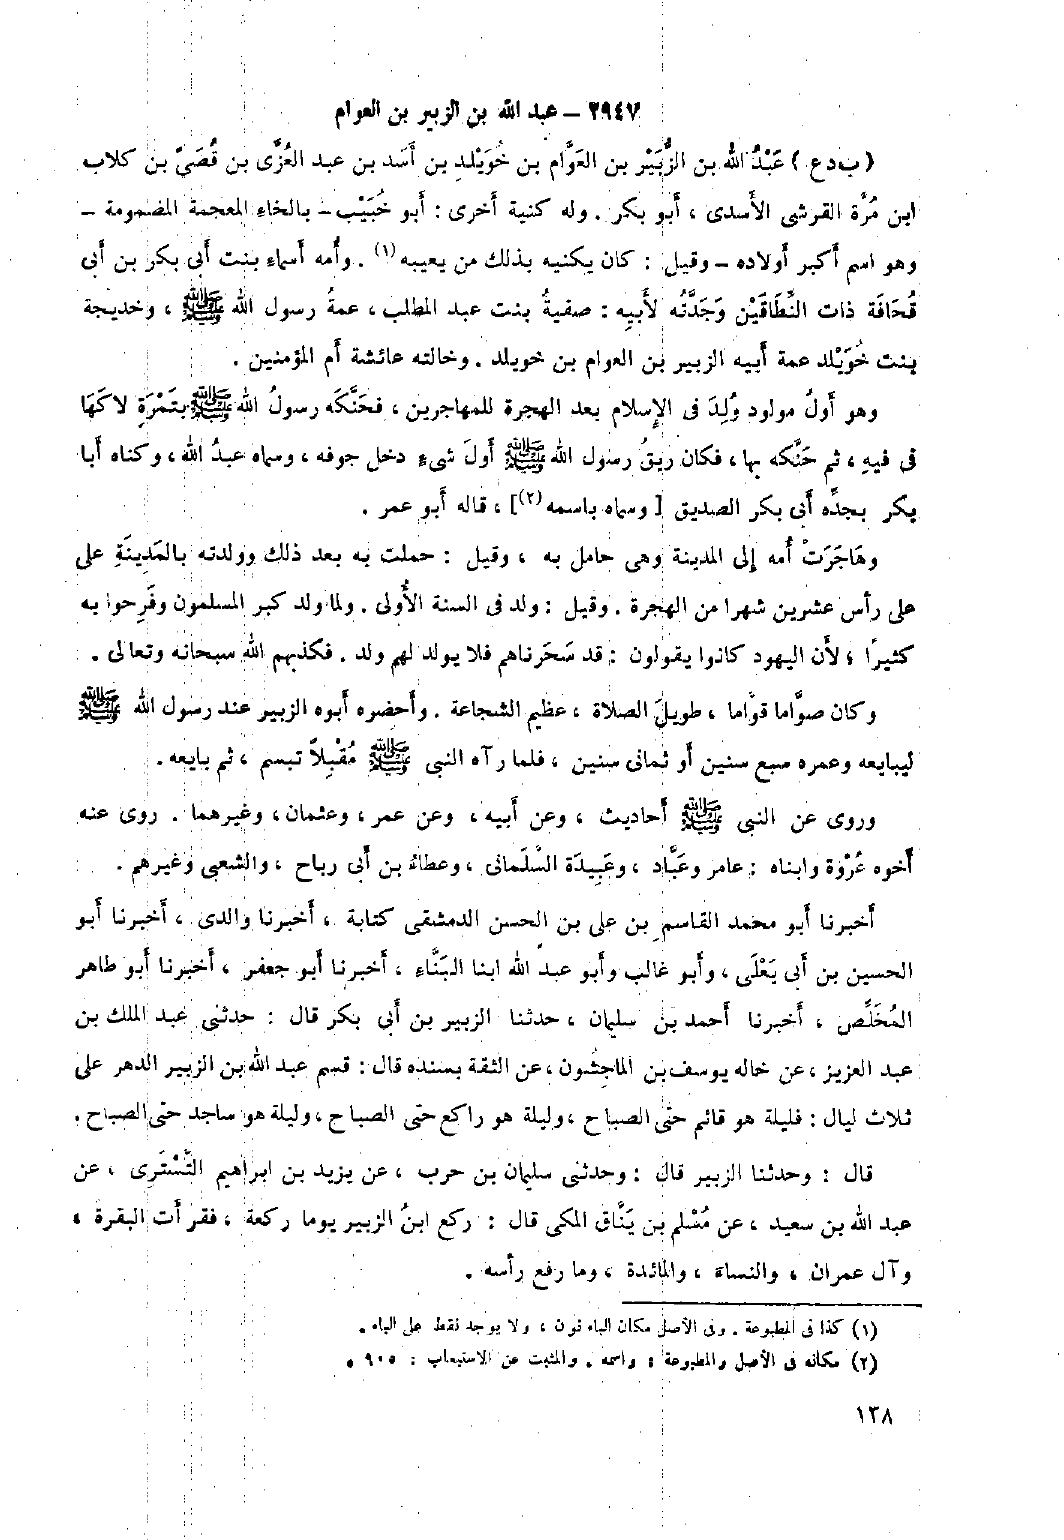 ٢٩٤٧ – عبد الله بن الزبير بن العوام
( ب د ع ) عَبْدُ الله بن الزُّبَيْر بن العَوَّام بن خُوَيْلِدِ بن أَسَد بن عبد العُزَّى بن قُصَيّ بن كلاب
ابن مُرَّة القرشى الأَسدى ، أَبو بكر . وله كنية أُخرى : أَبو خُبَيْب – بالخاءِ المعجمة المضمومة –
وهو اسم أَكبر أَولاده – وقيل : كان يكنيه بذلك من يعيبه (١) . وأُمه أَسماء بنت أَبى بكر بن أَبى
قُحَافَة ذات النِّطَاقَيْن وَجَدَّتُه لأَبيِه : صفيةُ بنت عبد المطلب ، عمةُ رسول الله ﷺ ، وخديجة
بنت خُوَيْلد عمة أَبيه الزبير بن العوام بن خويلد . وخالته عائشة أُم المؤمنين .
وهو أَولُ مولود وُلِدَ فى الإِسلام بعد الهجرة للمهاجرين ، فحَنَّكَه رسولُ الله ﷺ بتَمْرَةٍ لاكَهَا
فى فيهِ ، ثم حَنَّكه بها ، فكان رِيقُ رسول الله ﷺ أَولَ شىءٍ دخل جوفه ، وسماه عبدُ الله ، وكناه أَبا
بكر بجدِّه أَبى بكر الصديق [ وسماه باسمه (٢) ] ، قاله أَبو عمر .
وهَاجَرَتْ أُمه إِلى المدينة وهى حامل به ، وقيل : حملت به بعد ذلك وولدته بالمَدينَةِ على
على رأس عشرين شهرا من الهجرة . وقيل : ولد فى السنة الأُولى . ولما ولد كبر المسلمون وفَرِحوا به
كثيرًا ؛ لأَن اليهود كانوا يقولون : قد سَحَرناهم فلا يولد لهم ولد . فكذبهم اللهُ سبحانه وتعالى .
وكان صوَّاما قوَّاما ، طويلَ الصلاة ، عظيم الشجاعة . وأَحضره أَبوه الزبير عند رسول الله ﷺ
ليبايعه وعمره سبع سنين أَو ثمانى سنين ، فلما رآه النبى ﷺ مُقْبِلاً تبسم ، ثم بايعه .
وروى عن النبى ﷺ أَحاديث ، وعن أَبيه ، وعن عمر ، وعثمان ، وغيرهما . روى عنه
أَخوه عُرْوَة وابناه : عامر وعَبَّاد ، وعَبِيدَة السَّلْمانى ، وعطاءُ بن أَبى رباح ، والشعبى وغيرهم .
أَخبرنا أَبو محمد القاسم بن على بن الحسن الدمشقى كتابة ، أَخبرنا والدى ، أَخبرنا أَبو
الحسين بن أَبى يَعْلَى ، وأَبو غالب وأَبو عبد الله ابنا البَنَّاءِ ، أَخبرنا أَبو جعفر ، أَخبرنا أَبو طاهر
المُخَلَّص ، أَخبرنا أَحمد بن سليمان ، حدثنا الزبير بن أَبى بكر قال : حدثنى عبد الملك بن
عبد العزيز ، عن خاله يوسف بن الماجِشُون ، عن الثقة بسنده قال : قسم عبد الله بن الزبير الدهر على
ثلاث ليال : فليلة هو قائم حتَّى الصباح ، وليلة هو راكع حتى الصباح ، وليلة هو ساجد حتى الصباح .
قال : وحدثنا الزبير قال : وحدثنى سليمان بن حرب ، عن يزيد بن ابراهيم التُّسْتَرِى ، عن
عبد الله بن سعيد ، عن مُسْلم بن يَنَّاق المكى قال : ركع ابنُ الزبير يوما ركعة ، فقرأَت البقرة ،
وآل عمران ، والنساءَ ، والمائدة ، وما رفع رأسه .
(١) كذا فى المطبوعة . وفى الأصل مكان الباء نون ، ولا يوجد نقط على الياء .
(٢) مكانه فى الأصل والمطبوعة : واسمه . والمثبت عن الاستيعاب : ٩٠٥ .
١٣٨